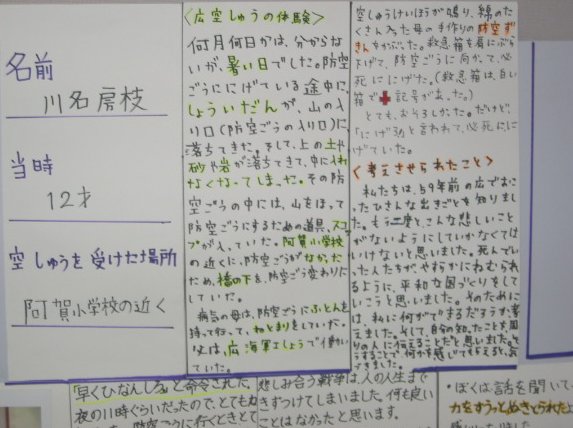 名前
川名房枝
当時
12才
空しゅうを受けた場所
阿賀小学校の近く
〈広空しゅうの体験〉
何月何日かは、分からな
いが、暑い日でした。防空
ごうににげている途中に、
しょういだんが、山の入
り口(防空ごうの入り口)に
落ちてきた。そして、上の土や
砂や岩が落ちてきて、中に入れ
なくなってしまった。その防
空ごうの中には、山をほって
防空ごうにするための道具、スコ
プが入っていた。阿賀小学校
の近くに、防空ごうがなかった
ため、橋の下を、防空ごう変わりに
していた。
病気の母は、防空ごうにふとんを
持って行って、ねとまりをしていた。
父は、広海軍工しょうで働い
ていた。
空しゅうけいほうが鳴り、綿のた
くさん入った母の手作りの防空ず
きんをかぶった。救急箱を肩にぶら
下げて、防空ごうに向かって、必
死ににげた。(救急箱は、白い
箱で✚記号があった。)
とても、おそろしかった。だけど、
「にげろ」と言われて、必死ににげ
げていた。
〈考えさせられたこと〉
私たちは、59年前の広でおこ
ったひさんな出きごとを知りまし
た。もう二度と、こんな悲しいこと
がないようにしていかなくては
いけないと思いました。死んでい
った人たちが、やすらかにねむられ
るように、平和な国づくりをして
いこうと思いました。そのために
は、私に何ができるだろうか考
えました。そして、自分の知ったことを周
りの人に伝えることだと思いました。そ
うすることで何かを感じてもらえると、
できました。
「早くひなんしろ」と命令された。
夜の11時ぐらいだったので、とても
防空ごうに行くときと
悲しみ合う戦争は、人の人生まで
きずつけてしまいました。何も良い
ことはなかったと思います。
・ぼくは話を聞いて
力をすうっとぬきとられたよ